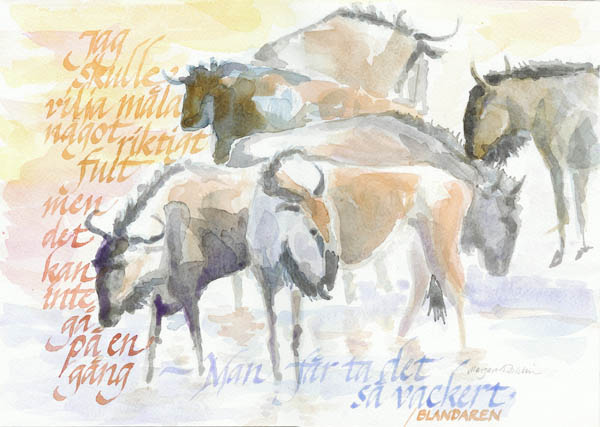 Jag
skulle
vilja måla
något riktigt
fult
men
det
kan
inte
gå
på en
gång
~ Man får ta det
så vackert
BLANDAREN